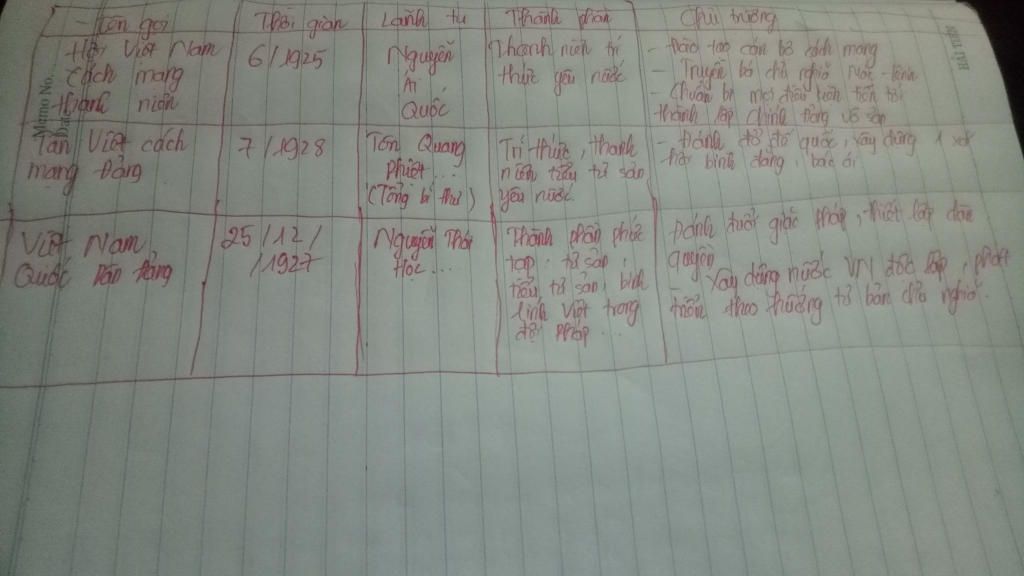 Tên gọi
Thời gian
Lãnh tụ
Thành phần
Chủ trương
Hội Việt Nam
cách mạng
thanh niên
6/1925
Nguyễn
Ái
Quốc
Thanh niên trí
thức yêu nước
- Đào tạo cán bộ cách mạng
- Truyền bá chủ nghĩa Mác-Lênin
- Chuẩn bị mọi điều kiện tiến tới
thành lập chính đảng vô sản
Tân Việt cách
mạng Đảng
7/1928
Tôn Quang
Phiệt...
(Tổng bí thư)
Trí thức, thanh
niên tiểu tư sản
yêu nước.
- Đánh đổ đế quốc, xây dựng 1 xã
hội bình đẳng, bác ái
Việt Nam
Quốc dân đảng
25/12/
/1927
Nguyễn Thái
Học...
Thành phần phức
tạp: tư sản,
tiểu tư sản, binh
lính Việt trong
đội Pháp...
- Đánh đuổi giặc Pháp, thiết lập dân
quyền
- Xây dựng nước VN độc lập, phát
triển theo hướng tư bản chủ nghĩa.
Memo No.
HẢI TIẾN